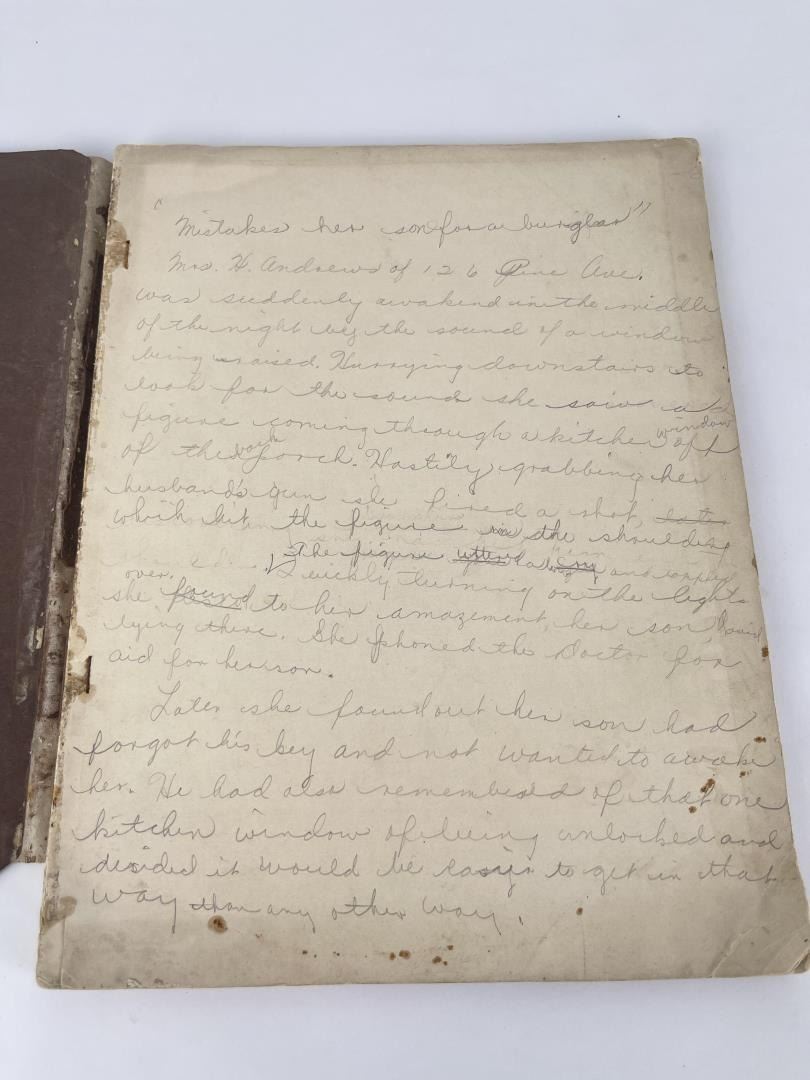 "Mistakes her son for a burglar"
Mrs. H. Andrews of 126 Pine Ave.
was suddenly awakend in the middle
of the night by the sound of a window
being raised. Hurrying downstairs to
look for the sound she saw a
figure coming through a kitchen window off
of the back porch. Hastily grabbing her
husband's gun she fired a shot,
which hit the figure in the shoulder
The figure uttered a cry and
over. Quickly turning on the lights
she found to her amazement, her son, David
lying there. She phoned the Doctor for
aid for her son.
Later she found out her son had
forgot his key and not wanted to awake
her. He had also remembered of that one
kitchen window of being unlocked and
decided it would be easier to get in that
way than any other way.